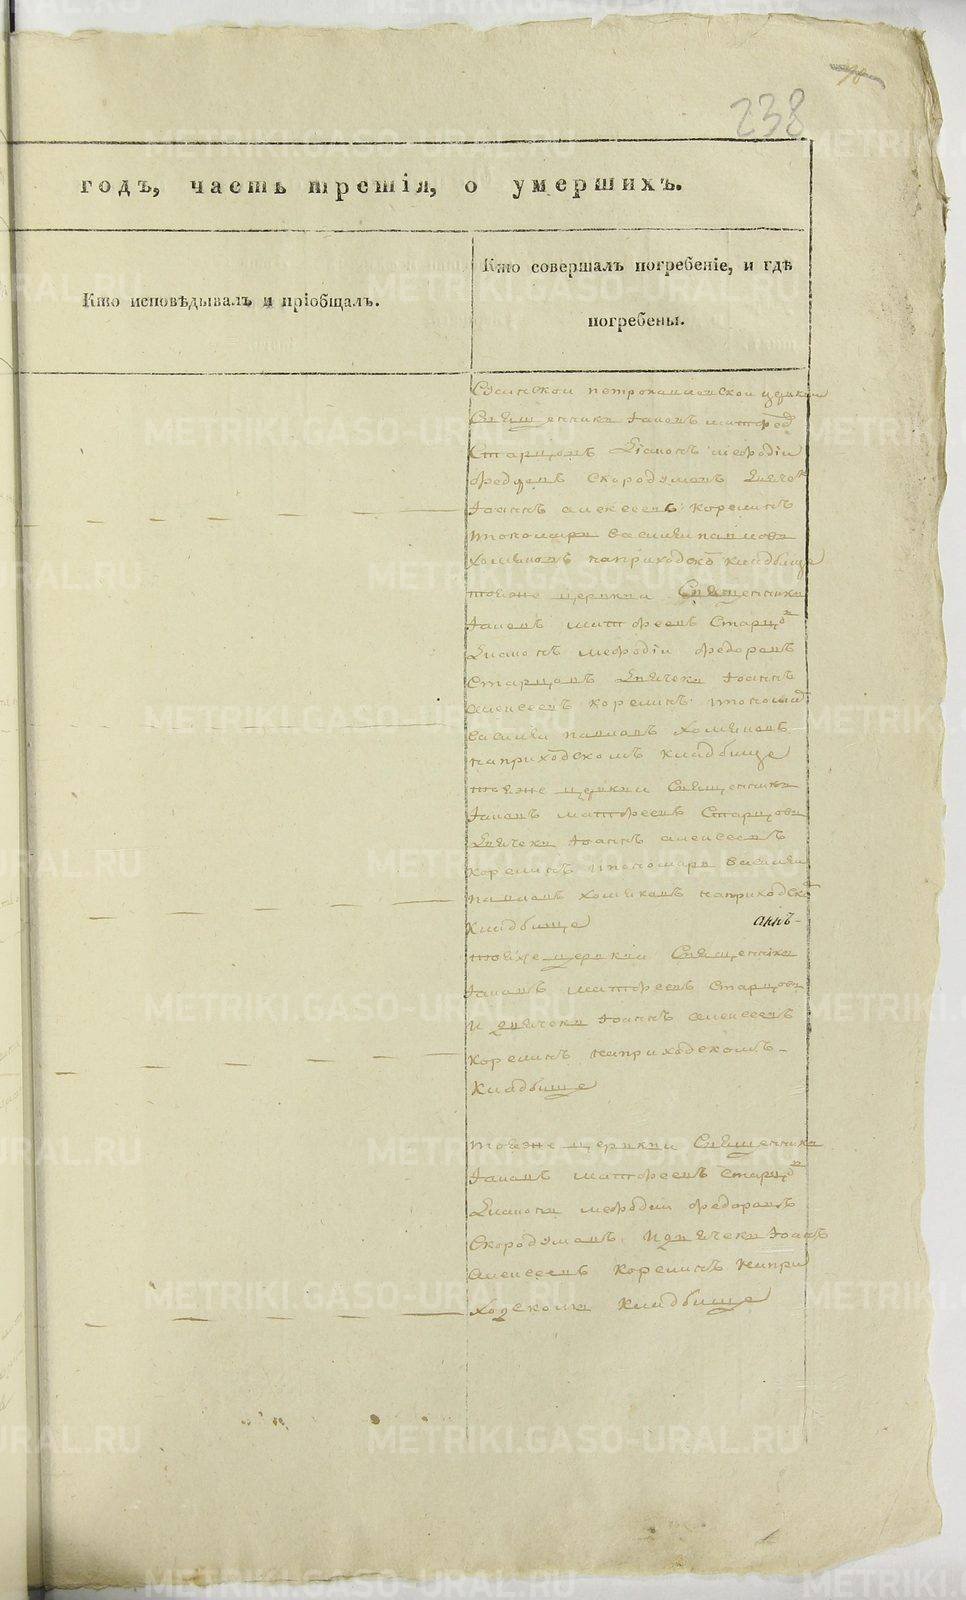 238
годъ, часть третія, о умершихъ.
Кто исповѣдывалъ и пріобщалъ.
Кто совершалъ погребеніе, и гдѣ
погребены.
петропавловской церкви
Священникъ Іаковъ матфеев
Старцовъ Діаконъ мефодіи
федоровъ Скородумовъ Дьячекъ
Іоаннъ алексеевъ Корелинъ
пономарь василеи павловъ
Хомяковъ наприходском кладбище
тояже церкви Священникъ
Іаковъ матфеевъ Старцов
Диаконъ мефодіи федоровъ
Старцовъ Дьячекъ Іоаннъ
алексеевъ Корелинъ пономар
василеи павловъ Хомяковъ
наприходскомъ кладбище
тояже церкви Священникъ
Іаковъ матфеевъ Старцовъ
Дьячекъ Іоаннъ алексеевъ
Корелинъ пономарь василеи
павловъ хомяковъ наприходском
Кладбище
тояже церкви Священникъ
Іаковъ матфеевъ Старцовъ
И дьячекъ Іоаннъ алексеевъ
Корелинъ наприходскомъ
Кладбище
тояже церкви Священникъ
Іаковъ матфеевъ Старцов
Диаконъ мефодии федоровъ
Скородумовъ И дьячекъ Іоаннъ
алексеевъ Корелинъ напри
ходскомъ Кладбище
METRIKI.GASO-URAL.RU